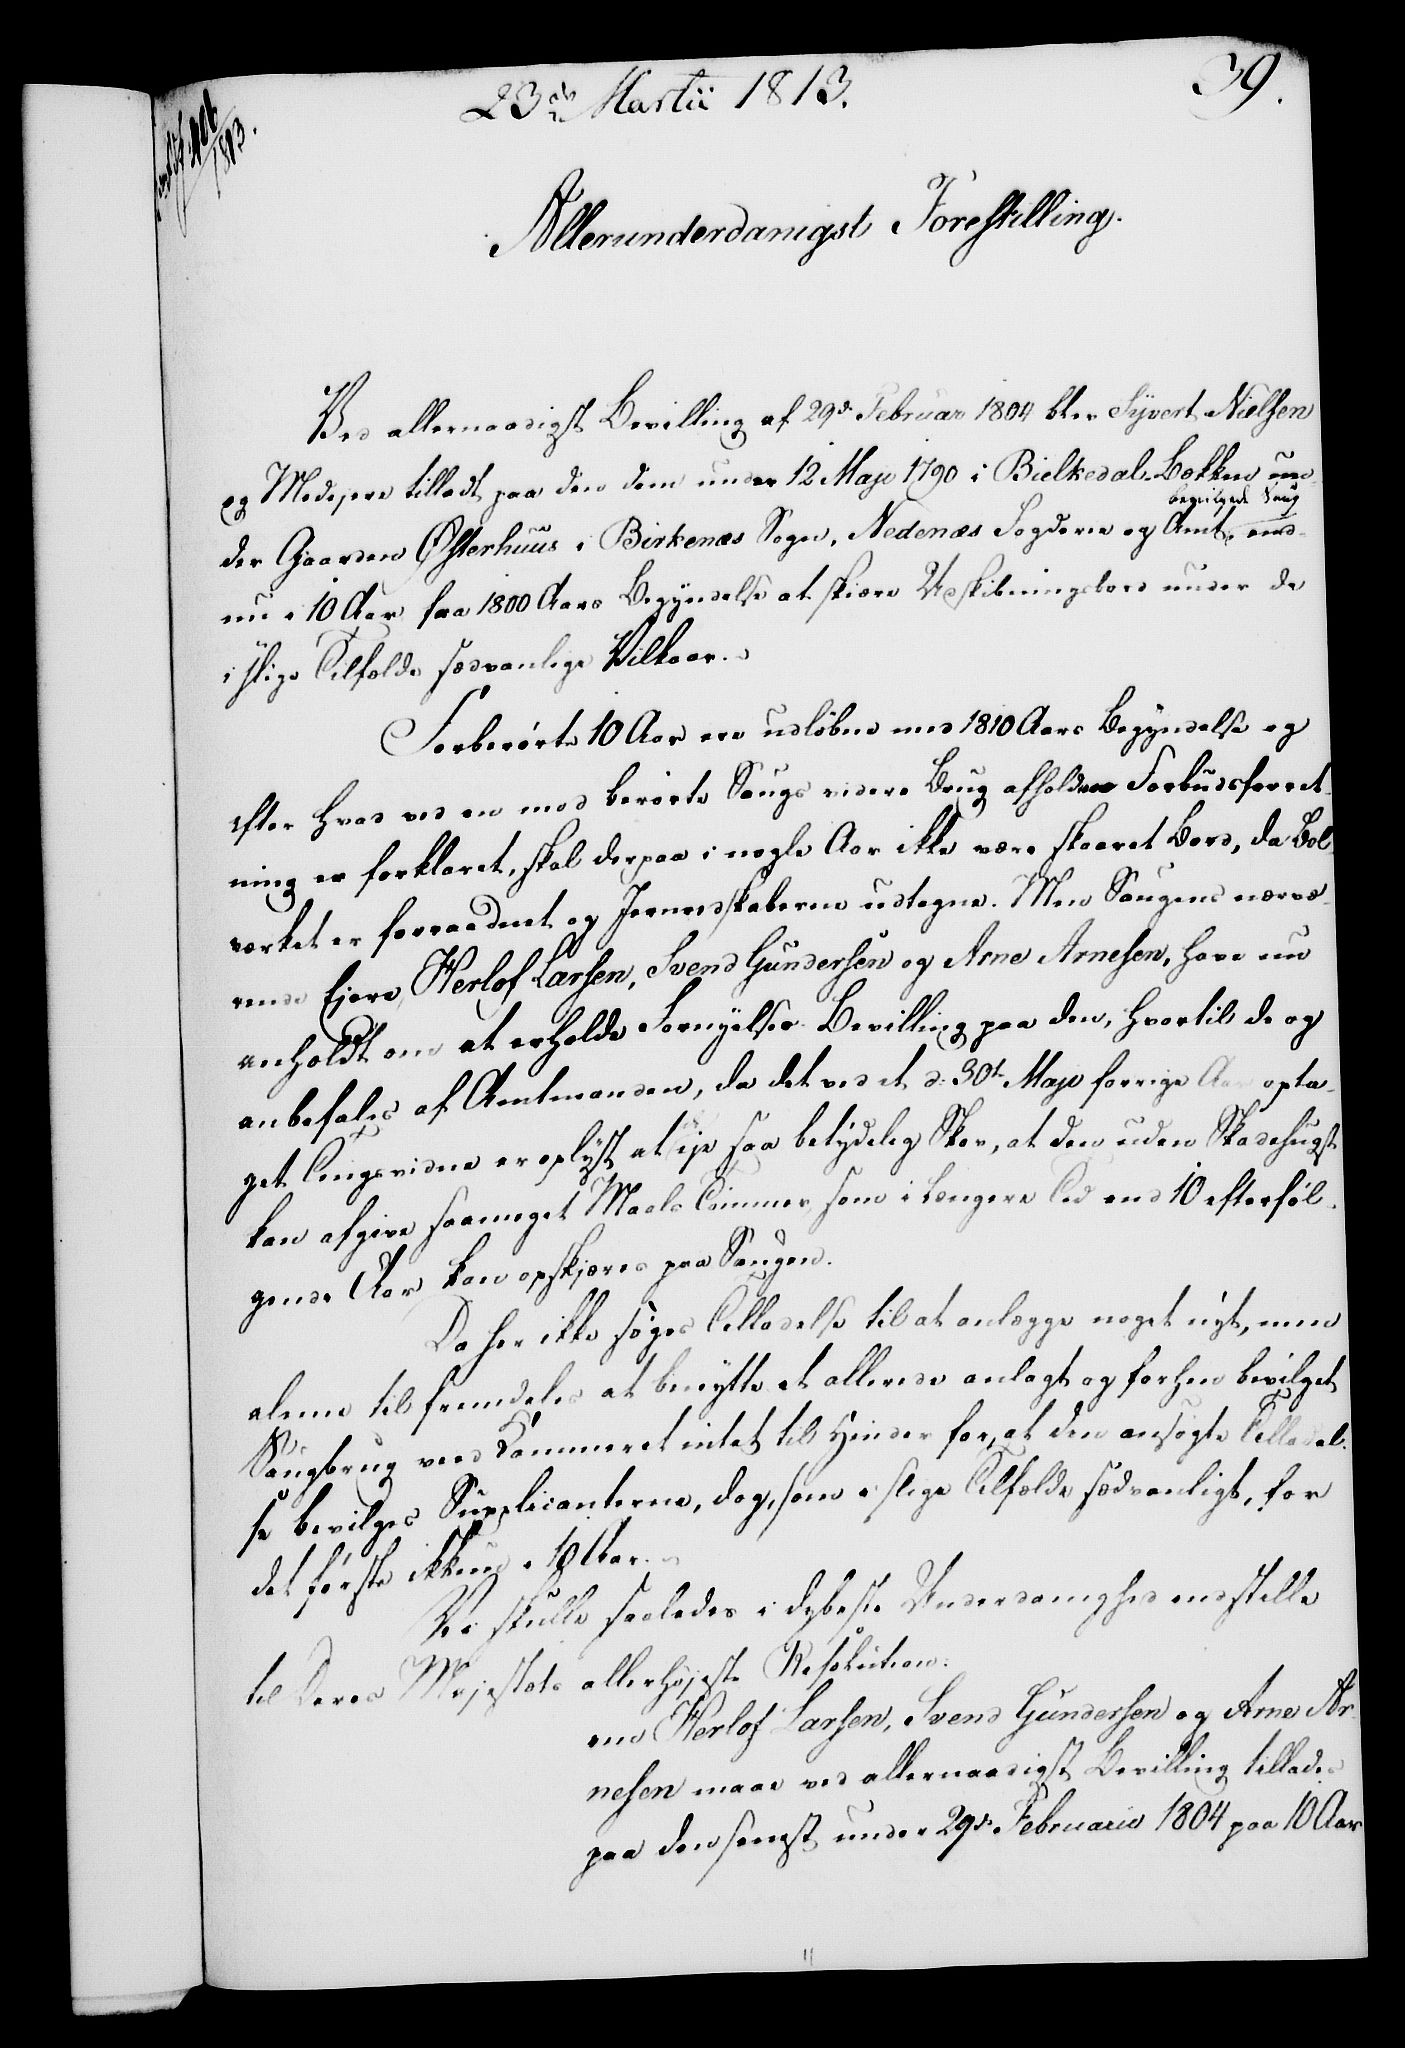 39.
23de Martii 1813.
406/1813.
Allerunderdanigst Forestilling.
Ved allernaadigst Bevilling af 29de Februar 1804 blev Syvert Nielsen
og Medejere tilladt paa den dem under 12 Maji 1790 i Bielkedal-Bækken un-
bevilgede Saug
der Gaarden Østerhuus i Birkenæs Sogn, Nedenæs Fogderie og Amt, end-
nu i 10 Aar fra 1800 Aars Begyndelse at skiære Udskibningsbord under de
i slige Tilfælde sædvanlige Vilkaar.
Forberørte 10 Aar ere udløbne med 1810 Aars Begyndelse og
efter hvad ved en mod berørte Saugs videre Brug afholden Forbudsforret-
ning er forklaret, skal derpaa i nogle Aar ikke være skaaret Bord, da Bol-
værket er forraadnet og Jernredskaberne udtagne. Men Saugens nærvæ-
rende Ejere, Herlof Larsen, Svend Gundersen og Arne Arnesen, have nu
anholdt om at erholde Fornyelses Bevilling paa den, hvortil de og
anbefales af Amtmanden, da det ved et d: 30te Maji forrige Aar opta-
get Tingsvidne er oplyst at eje saa betydelig Skov, at den uden Skadehugst
kan afgive saameget Maals Tømmer, som i længere Tid end 10 efterføl-
gende Aar kan opskjæres paa Saugen.
Da her ikke søges Tilladelse til at anlægge noget nyt, men
alene til fremdeles at benytte et allerede anlagt og forhen bevilget
Saugbrug veed Kammeret intet til Hinder for, at den ansøgte Tilladel-
se bevilges Supplicanterne, dog, som i slige Tilfælde sædvanligt, for
det første ikkun i 10 Aar.
Vi skulle saaledes i dybeste Underdanighed indstille
til Deres Majestæts allerhøjeste Resolution:
om Herlof Larsen, Svend Gundersen og Arne Ar-
nesen maae ved allernaadigst Bevilling tillades
paa den senest under 29de Februarii 1804 paa 10 Aar